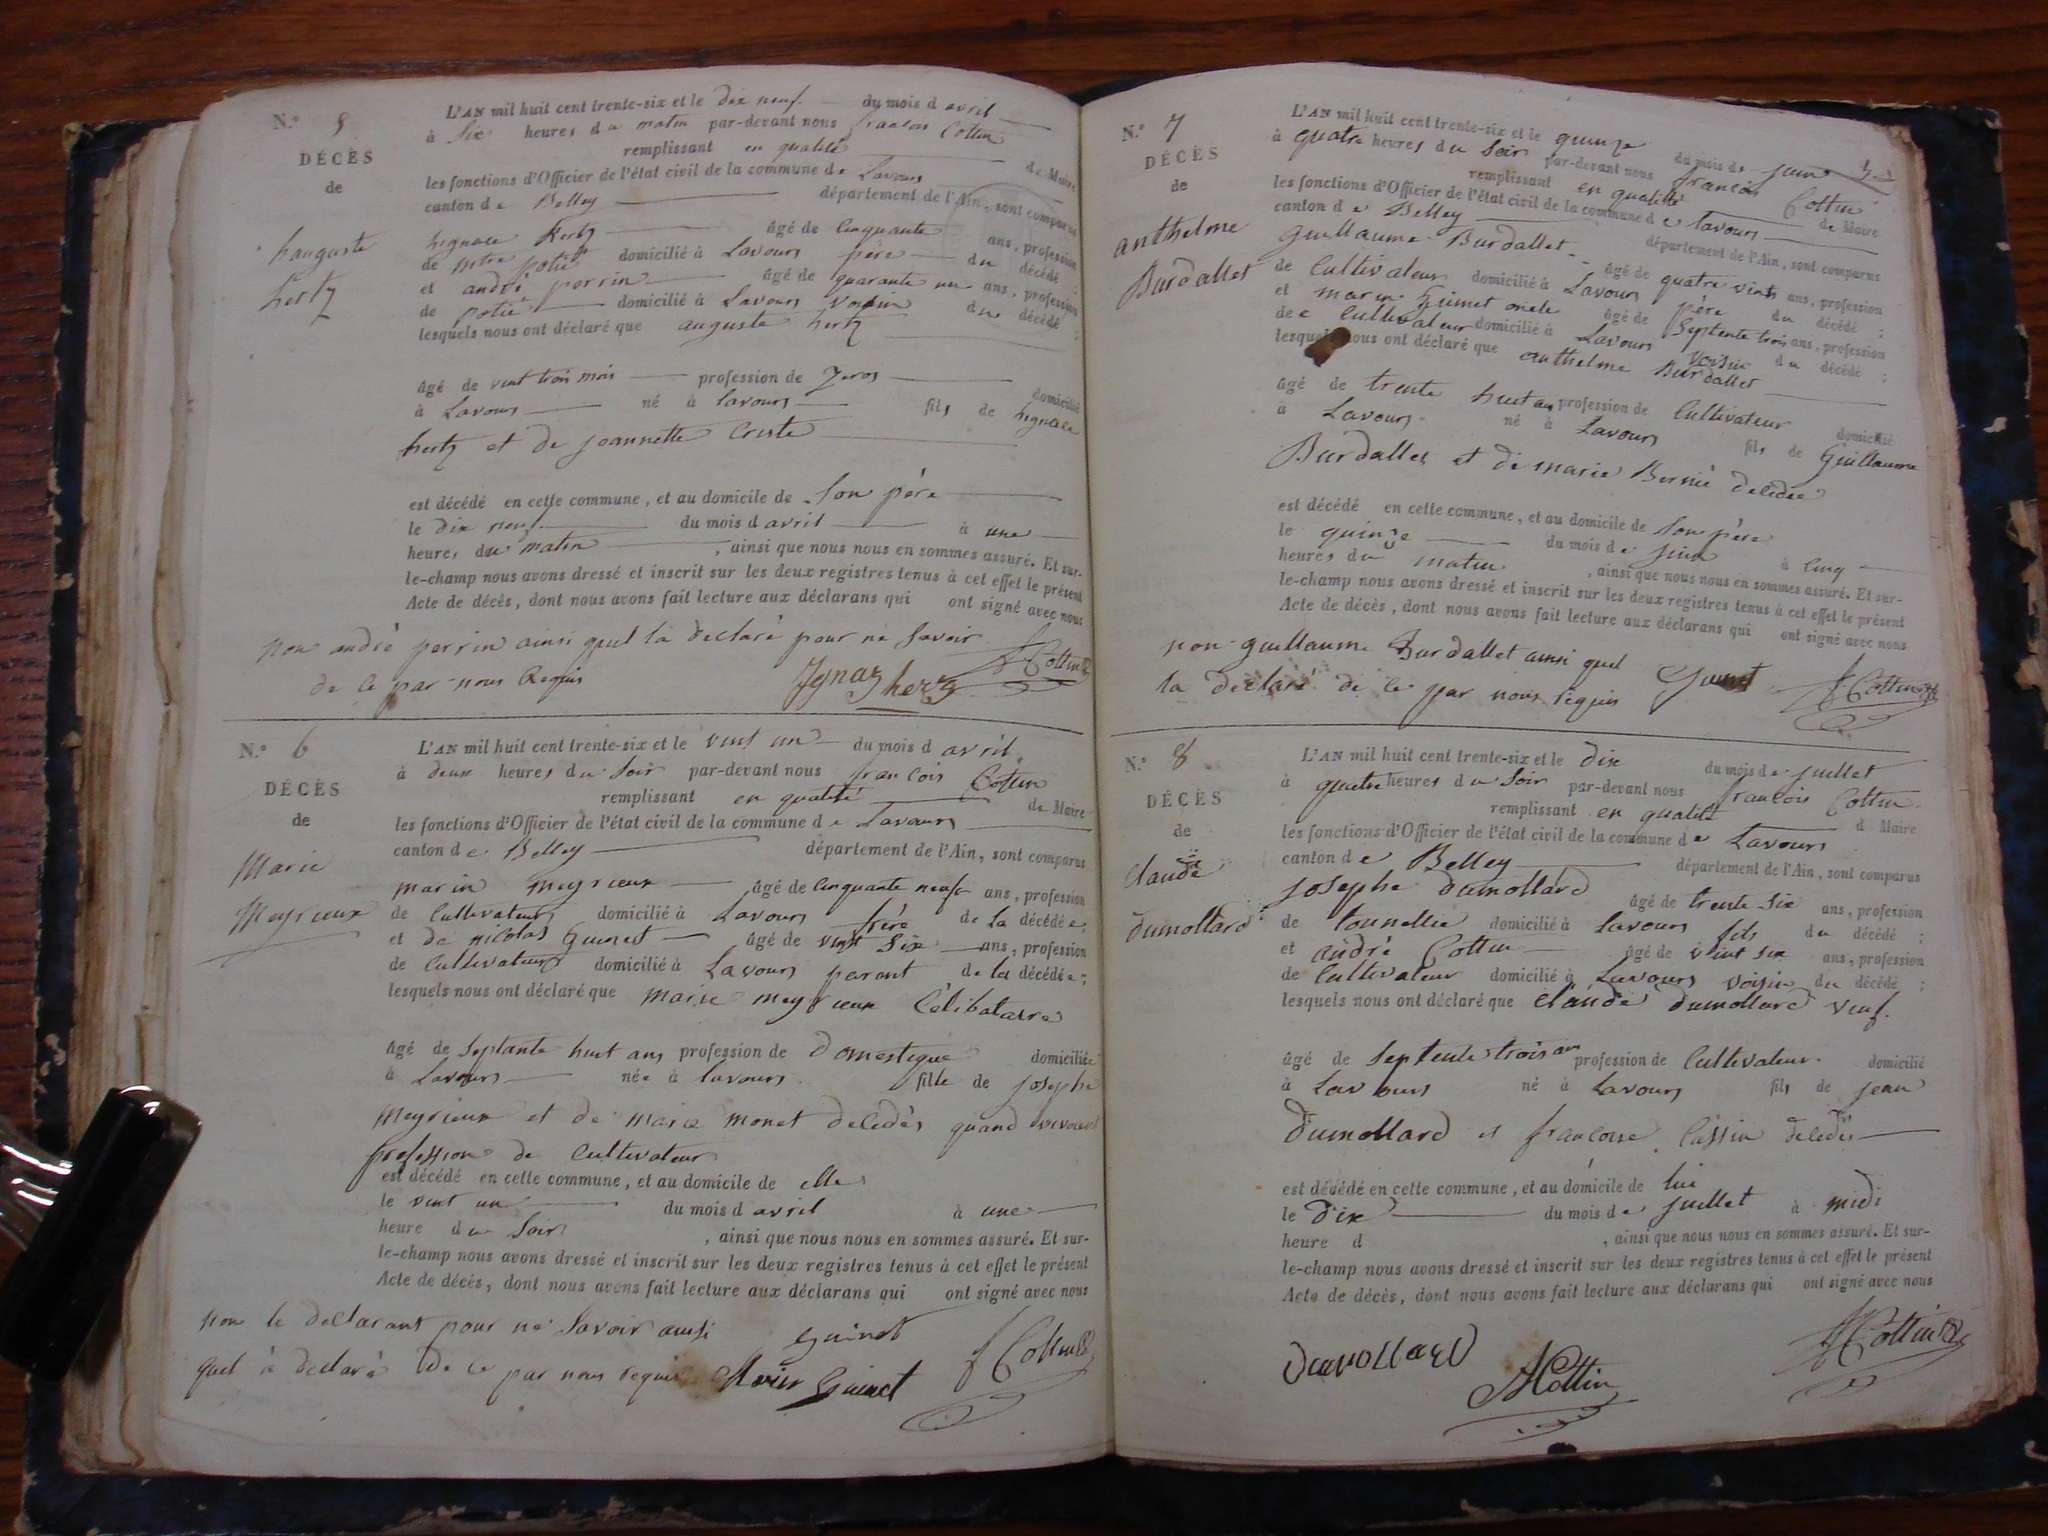 N.º 5
DÉCÈS
de
hauguste
hertz
L'AN mil huit cent trente-six et le dix neuf du mois d avril
à six heures du matin par-devant nous francois Cottin
remplissant en qualité de Maire
les fonctions d'Officier de l'état civil de la commune de Lavours
canton de Belley département de l'Ain, sont comparus
hignace hertz âgé de cinquante ans, profession
de potié domicilié à Lavours père du décédé ;
et andré perrin âgé de quarante un ans, profession
de potié domicilié à Lavours voisin du décédé ;
lesquels nous ont déclaré que auguste hertz
âgé de vint trois mois profession de Zeros domicilié
à Lavours né à lavours fils de hignace
hertz et de jeannette Criste
est décédé en cette commune, et au domicile de Son père
le dix neuf du mois d avril à une
heures du matin , ainsi que nous nous en sommes assuré. Et sur-
le-champ nous avons dressé et inscrit sur les deux registres tenus à cet effet le présent
Acte de décès, dont nous avons fait lecture aux déclarans qui ont signé avec nous
non andré perrin ainsi quil la declaré pour ne Savoir
de ce par nous Requis Ignaz herz f Cottin
N.º 6
DÉCÈS
de
Marie
Meyrieux
L'AN mil huit cent trente-six et le vint un du mois d avril
à deux heures du Soir par-devant nous francois Cottin
remplissant en qualité de Maire
les fonctions d'Officier de l'état civil de la commune de Lavours
canton de Belley département de l'Ain, sont comparus
marin meyrieux âgé de cinquante neuf ans, profession
de Cultivateur domicilié à Lavours frère de la décédée;
et de nicolas Guinet âgé de vint six ans, profession
de Cultivateur domicilié à Lavours parant de la décédée;
lesquels nous ont déclaré que marie meyrieux Célibataire
âgé de Septante huit ans profession de Domestique domiciliée
à Lavours née à lavours fille de josephe
meyrieux et de marie monet décédés quand vivoient
profession de Cultivateur
est décédé en cette commune, et au domicile de elle
le vint un du mois d avril à une
heure du Soir , ainsi que nous nous en sommes assuré. Et sur-
le-champ nous avons dressé et inscrit sur les deux registres tenus à cet effet le présent
Acte de décès, dont nous avons fait lecture aux déclarans qui ont signé avec nous
non le declarant pour ne Savoir ainsi Guinet
quil à declaré de ce par nous requis Guinet f Cottin
N.º 7
DÉCÈS
de
anthelme
Burdallet
L'AN mil huit cent trente-six et le quinze du mois de juin
à quatre heures du Soir par-devant nous francois Cottin
remplissant en qualité de Maire
les fonctions d'Officier de l'état civil de la commune de lavours
canton de Belley département de l'Ain, sont comparus
Guillaume Burdallet âgé de quatre vints ans, profession
de Cultivateur domicilié à Lavours père du décédé ;
et marin Guimet oncle âgé de Septente trois ans, profession
de Cultivateur domicilié à Lavours voisin du décédé ;
lesquels nous ont déclaré que anthelme Burdallet
âgé de trente huit ans profession de Cultivateur domicilié
à Lavours né à Lavours fils de Guillaume
Burdallet et de marie Bernié decedée
est décédé en cette commune, et au domicile de Son père
le quinze du mois de juin à Cinq
heures du matin , ainsi que nous nous en sommes assuré. Et sur-
le-champ nous avons dressé et inscrit sur les deux registres tenus à cet effet le présent
Acte de décès, dont nous avons fait lecture aux déclarans qui ont signé avec nous
non guillaume Burdallet ainsi quel
la declaré de ce par nous requis f Cottin
N.º 8
DÉCÈS
de
claude
dumollard
L'AN mil huit cent trente-six et le dix du mois de juillet
à quatre heures du Soir par-devant nous francois Cottin
remplissant en qualité d Maire
les fonctions d'Officier de l'état civil de la commune de Lavours
canton de Belley département de l'Ain, sont comparus
josephe dumollard âgé de trente six ans, profession
de tonnellié domicilié à lavours fils du décédé ;
et andré Cottin âgé de vint six ans, profession
de Cultivateur domicilié à Lavours voisin du décédé ;
lesquels nous ont déclaré que claude dumollard veuf
âgé de Septente trois ans profession de Cultivateur domicilié
à Lavours né à Lavours fils de jean
dumollard et francoise Cassin decedés
est décédé en cette commune, et au domicile de lui
le dix du mois de juillet à midi
heure d , ainsi que nous nous en sommes assuré. Et sur-
le-champ nous avons dressé et inscrit sur les deux registres tenus à cet effet le présent
Acte de décès, dont nous avons fait lecture aux déclarans qui ont signé avec nous
Dumollard A Cottin f Cottin